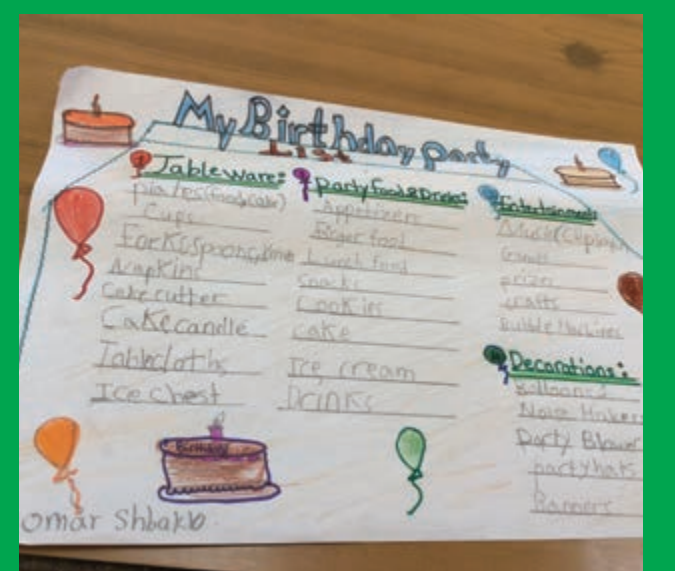 My Birthday party
List
Tableware:
plates(food,cake)
Cups
Forks,spoons,knive
Napkins
Cake cutter
Cake candle
Tablecloths
Ice chest
party food & Drinks:
Appetizers
Finger food
Lunch food
Snacks
Cookies
cake
Ice cream
Drinks
Entertainment:
Music
Games
prizes
crafts
Bubble Machines
Decorations:
Balloons
Noise Maker
Party Blower
party hats
Banners
Birthday
omar Shbaklo